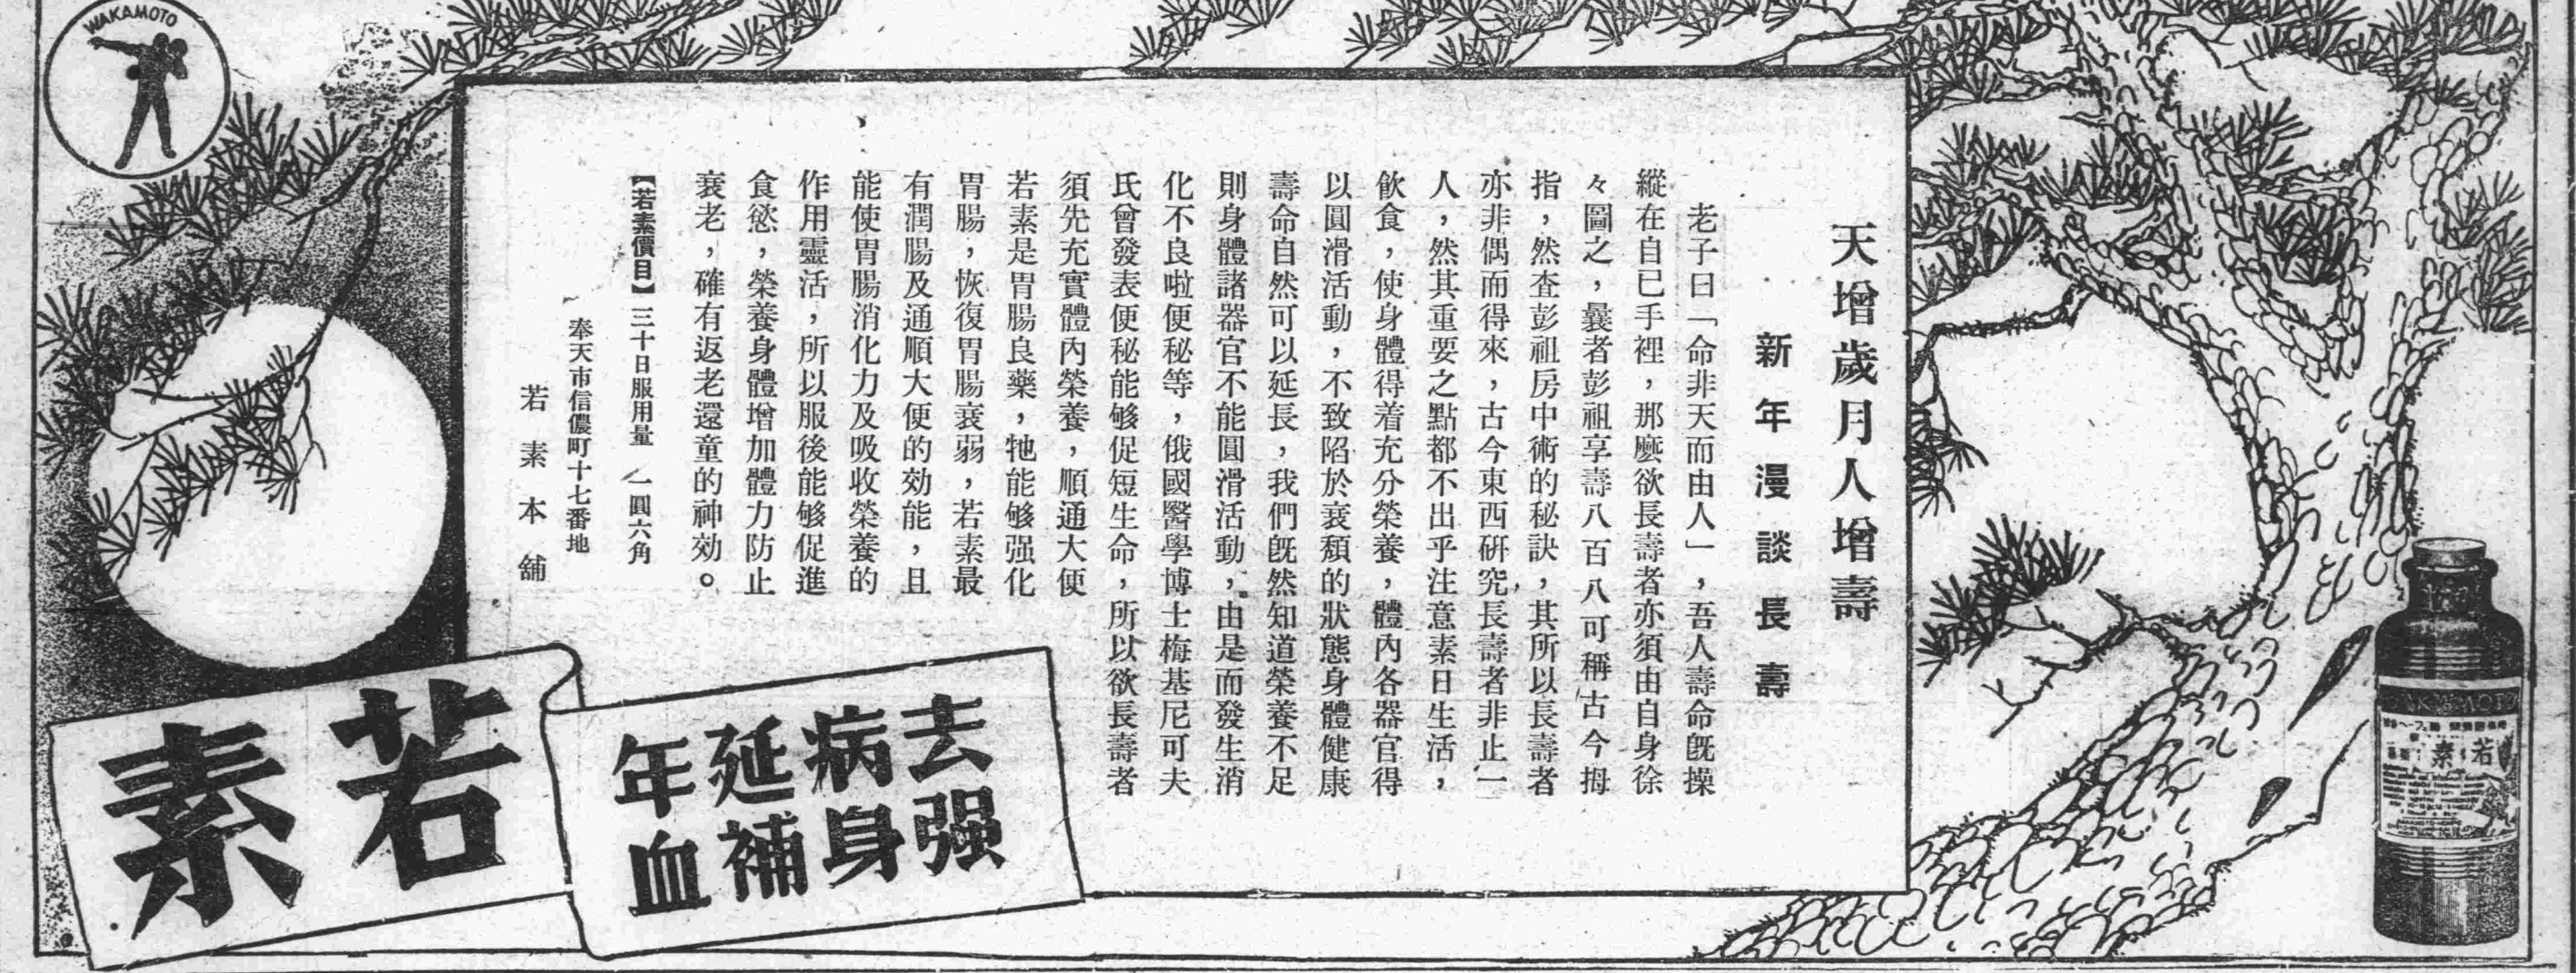 天增歲月人增壽
新年漫談長壽
老子曰「命非天而由人」，吾人壽命旣操
縱在自己手裡，那麽欲長壽者亦須由自身徐
々圖之，曩者彭祖享壽八百八可稱古今拇
指，然查彭祖房中術的秘訣，其所以長壽者
亦非偶而得來，古今東西硏究長壽者非止一
人，然其重要之點都不出乎注意素日生活，
飮食，使身體得着充分榮養，體內各器官得
以圓滑活動，不致陷於衰頹的狀態身體健康
壽命自然可以延長，我們旣然知道榮養不足
則身體諸器官不能圓滑活動，由是而發生消
化不良啦便秘等，俄國醫學博士梅基尼可夫
氏曾發表便秘能够促短生命，所以欲長壽者
須先充實體內榮養，順通大便
若素是胃腸良藥，牠能够强化
胃腸，恢復胃腸衰弱，若素最
有潤腸及通順大便的効能，且
能使胃腸消化力及吸收榮養的
作用靈活，所以服後能够促進
食慾，榮養身體增加體力防止
衰老，確有返老還童的神効。
【若素價目】三十日服用量 一圓六角
奉天市信濃町十七番地
若素本舖
去病延年
强身補血
若素
WAKAMOTO
若素